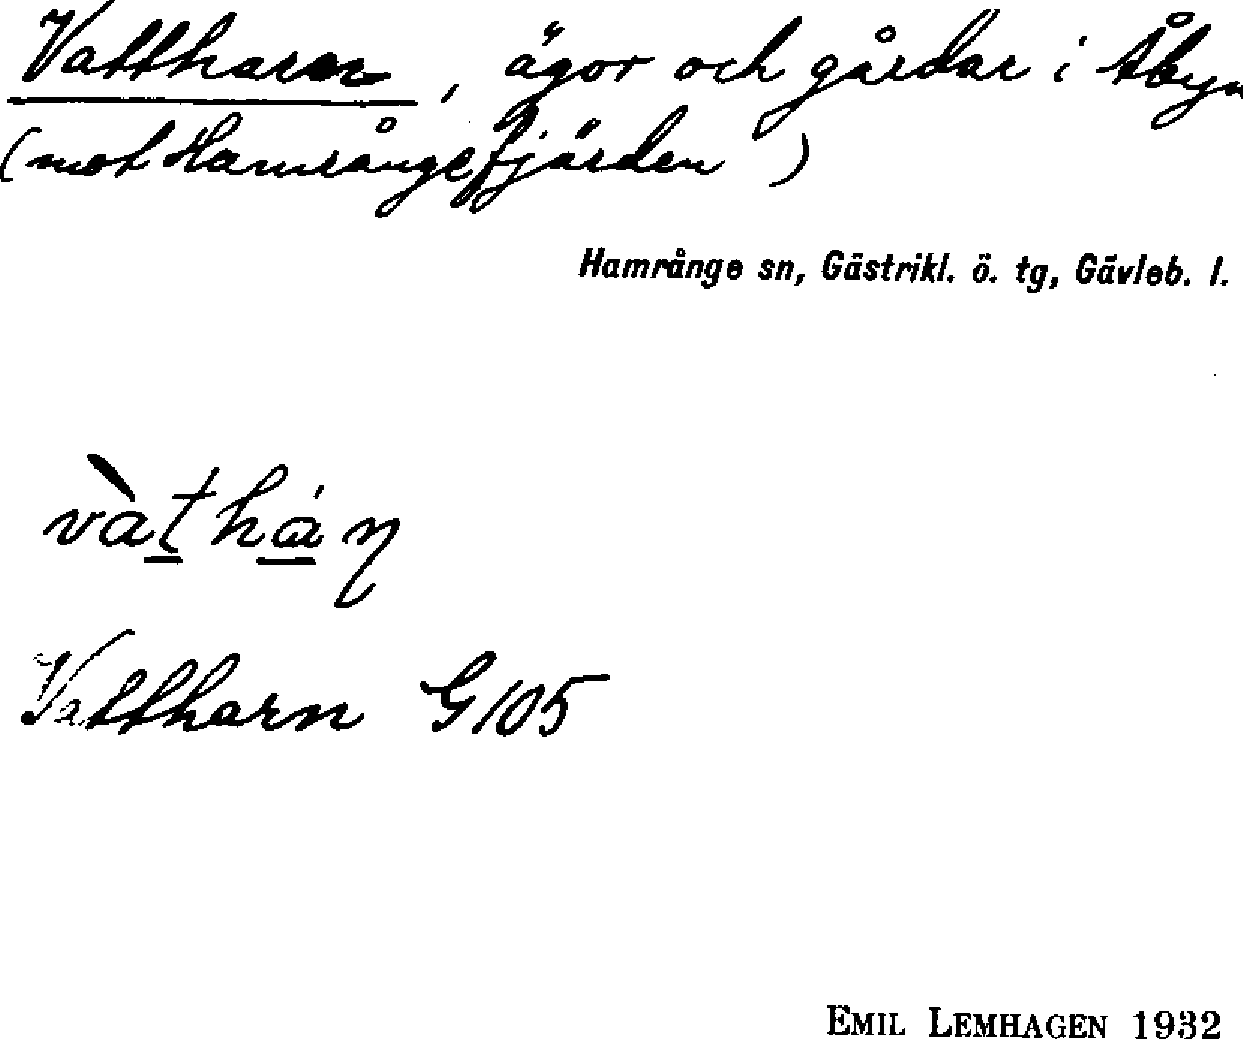 Vattharn, ägor och gårdar i Åbyn
(mot Hamrångefjärden)
Hamrånge sn, Gästrikl. ö. tg, Gävleb. l.
vàthán
Vattharn G105
EMIL LEMHAGEN 1932